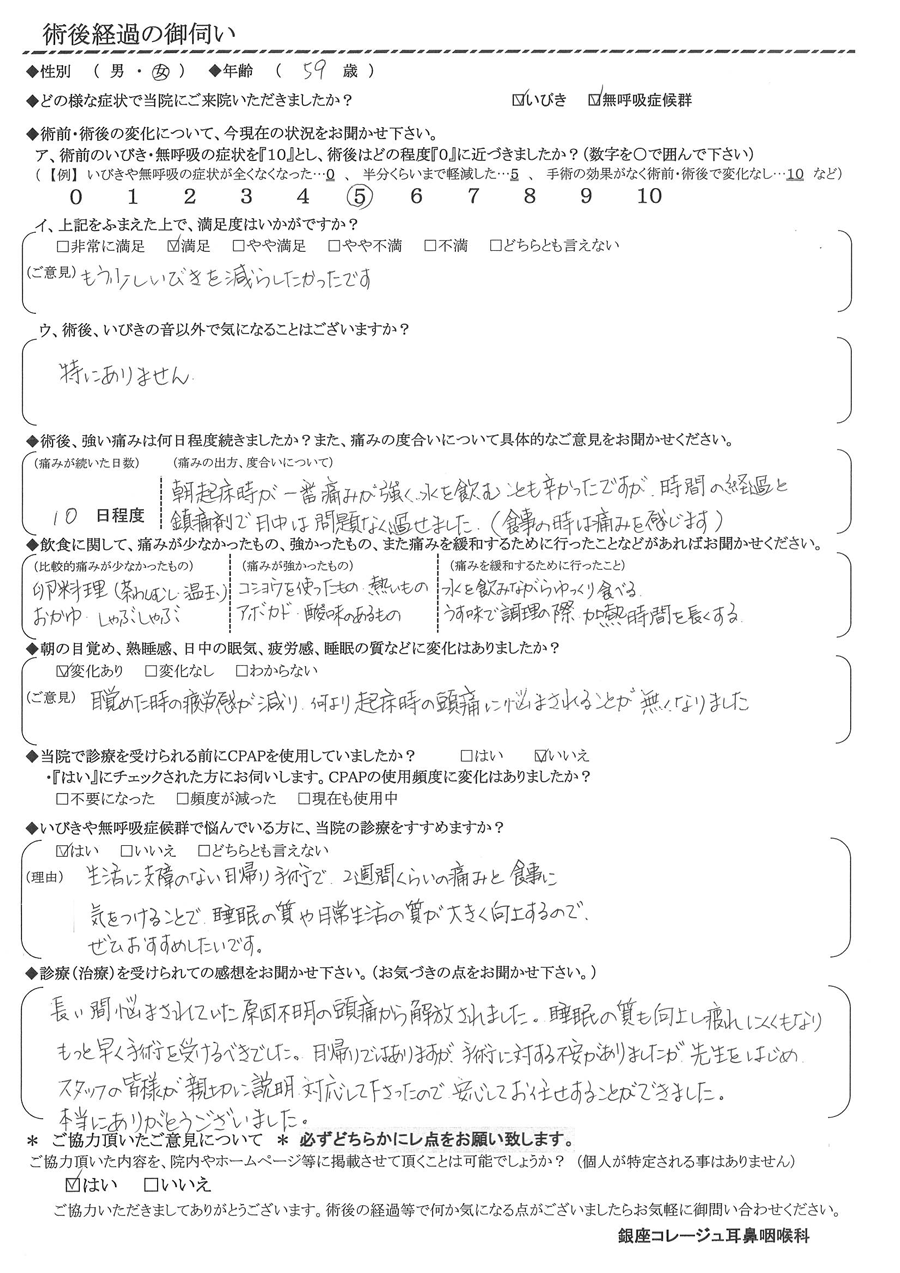 術後経過の御伺い
◆性別 ( 男 ・ 女 ) ◆年齢 ( 59 歳 )
◆どの様な症状で当院にご来院いただきましたか? ☑いびき ☑無呼吸症候群
◆術前・術後の変化について、今現在の状況をお聞かせ下さい。
ア、術前のいびき・無呼吸の症状を『10』とし、術後はどの程度『0』に近づきましたか?(数字を○で囲んで下さい)
(【例】いびきや無呼吸の症状が全くなくなった…0 、 半分くらいまで軽減した…5 、 手術の効果がなく術前・術後で変化なし…10 など)
0 1 2 3 4 5 6 7 8 9 10
イ、上記をふまえた上で、満足度はいかがですか?
□非常に満足 ☑満足 □やや満足 □やや不満 □不満 □どちらとも言えない
(ご意見) もう少しいびきを減らしたかったです
ウ、術後、いびきの音以外で気になることはございますか?
特にありません
◆術後、強い痛みは何日程度続きましたか?また、痛みの度合いについて具体的なご意見をお聞かせください。
(痛みが続いた日数) (痛みの出方、度合いについて)
朝起床時が一番痛みが強く、水を飲むことも辛かったですが、時間の経過と
10 日程度 鎮痛剤で日中は問題なく過せました。(食事の時は痛みを感じます)
◆飲食に関して、痛みが少なかったもの、強かったもの、また痛みを緩和するために行ったことなどがあればお聞かせください。
(比較的痛みが少なかったもの) (痛みが強かったもの) (痛みを緩和するために行ったこと)
卵料理(茶わんむし・温玉) コショウを使ったもの 熱いもの 水を飲みながらゆっくり食べる
おかゆ しゃぶしゃぶ アボカド 酸味のあるもの うす味で調理の際 加熱時間を長くする
◆朝の目覚め、熟睡感、日中の眠気、疲労感、睡眠の質などに変化はありましたか?
☑変化あり □変化なし □わからない
(ご意見) 目覚めた時の疲労感が減り、何より起床時の頭痛に悩まされることが無くなりました
◆当院で診療を受けられる前にCPAPを使用していましたか? □はい ☑いいえ
・『はい』にチェックされた方にお伺いします。CPAPの使用頻度に変化はありましたか?
□不要になった □頻度が減った □現在も使用中
◆いびきや無呼吸症候群で悩んでいる方に、当院の診療をすすめますか?
☑はい □いいえ □どちらとも言えない
(理由) 生活に支障のない日帰り手術で、2週間くらいの痛みと食事に
気をつけることで、睡眠の質や日常生活の質が大きく向上するので、
ぜひおすすめしたいです。
◆診療(治療)を受けられての感想をお聞かせ下さい。(お気づきの点をお聞かせ下さい。)
長い間悩まされていた原因不明の頭痛から解放されました。睡眠の質も向上し疲れにくくもなり
もっと早く手術を受けるべきでした。日帰りではありますが、手術に対する不安がありましたが、先生をはじめ
スタッフの皆様が親切に説明、対応して下さったので、安心してお任せすることができました。
本当にありがとうございました。
＊ ご協力頂いたご意見について ＊ 必ずどちらかにレ点をお願い致します。
ご協力頂いた内容を、院内やホームページ等に掲載させて頂くことは可能でしょうか? (個人が特定される事はありません)
☑はい □いいえ
ご協力いただきましてありがとうございます。術後の経過等で何か気になる点がございましたらお気軽に御問い合わせください。
銀座コレージュ耳鼻咽喉科